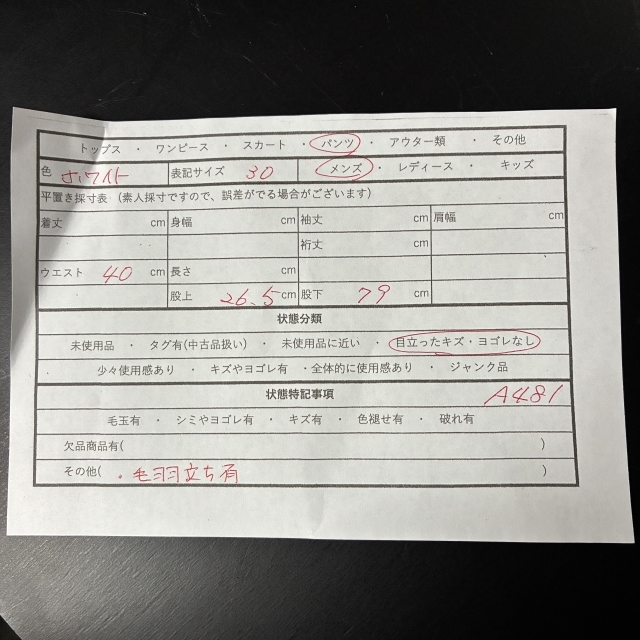 トップス ・ ワンピース ・ スカート ・ パンツ ・ アウター類 ・ その他
色 ホワイト 表記サイズ 30 メンズ ・ レディース ・ キッズ
平置き採寸表 (素人採寸ですので、誤差がでる場合がございます)
着丈 cm 身幅 cm 袖丈 cm 肩幅 cm
裄丈 cm
ウエスト 40 cm 長さ cm
股上 26.5 cm 股下 79 cm
状態分類
未使用品 ・ タグ有(中古品扱い) ・ 未使用品に近い ・ 目立ったキズ・ヨゴレなし
少々使用感あり ・ キズやヨゴレ有 ・全体的に使用感あり ・ ジャンク品
状態特記事項 A481
毛玉有 ・ シミやヨゴレ有 ・ キズ有 ・ 色褪せ有 ・ 破れ有
欠品商品有( )
その他( ・毛羽立ち有 )